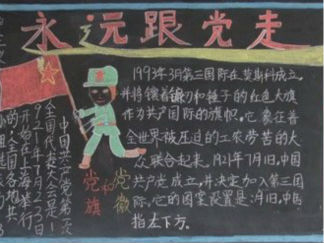 永远跟党走
1993年3月第三国际在莫斯科成立,
并将镶着镰刀和锤子的红色大旗
作为共产国际的旗帜,它象征着
全世界被压迫的工农劳苦的大
众联合起来。1921年7月1日,中国
共产党成立,并决定加入第三国
际,它的图案设置是:月旧,中马
指左下方。
党和
旗
党徽
中国共产党第一次
全国代表大会是1
921年7月23日
开始在上海举行
的,全国各地共